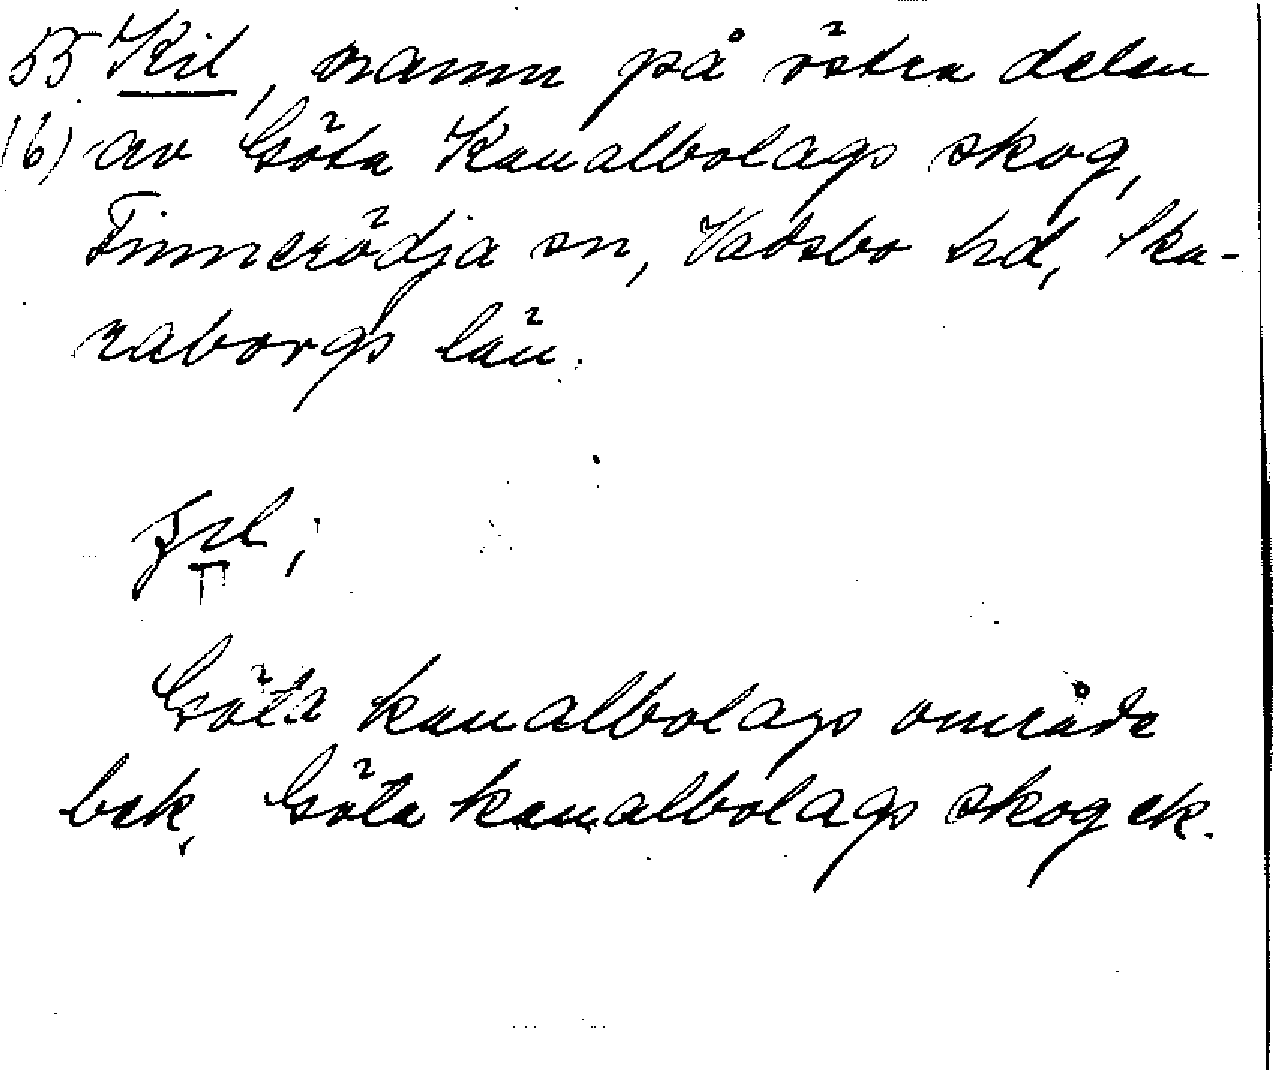 55 Kil, namn på östra delen
(6) av Göta Kanalbolags skog,
Finnerödja sn, Vadsbo hd, Ska-
raborgs län.
Göta kanalbolags område
bek, Göta kanalbolags skog ek.